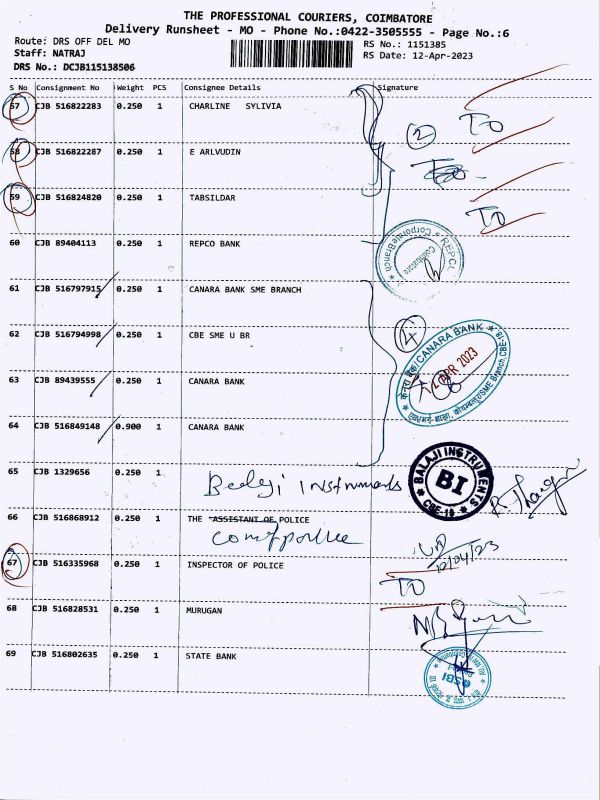 THE PROFESSIONAL COURIERS, COIMBATORE
Delivery Runsheet - MO - Phone No.:0422-3505555 - Page No.:6
Route: DRS OFF DEL MO
RS No.: 1151385
Staff: NATRAJ
RS Date: 12-Apr-2023
DRS No.: DCJB115138506
S No Consignment No Weight PCS Consignee Details Signature
57 CJB 516822283 0.250 1 CHARLINE SYLIVIA
2 TO
58 CJB 516822287 0.250 1 E ARLVUDIN
59 CJB 516824820 0.250 1 TABSILDAR
TO
60 CJB 89404113 0.250 1 REPCO BANK
Corporate Branch
61 CJB 516797915 0.250 1 CANARA BANK SME BRANCH
62 CJB 516794998 0.250 1 CBE SME U BR
4
CANARA BANK
APR 2023
SME Branch, CBE-18
63 CJB 89439555 0.250 1 CANARA BANK
64 CJB 516849148 0.900 1 CANARA BANK
65 CJB 1329656 0.250 1 Balaji Instruments
BALAJI INSTRUMENTS
BI
CBE-18
66 CJB 516868912 0.250 1 THE ASSISTANT OF POLICE
12/04/23
67 CJB 516335968 0.250 1 INSPECTOR OF POLICE
TO
68 CJB 516828531 0.250 1 MURUGAN
69 CJB 516802635 0.250 1 STATE BANK
SBI